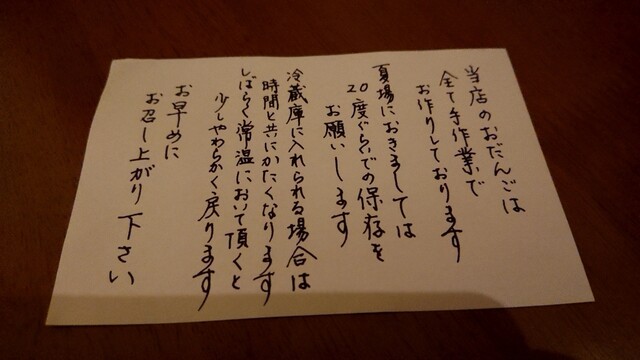 当店のおだんごは
全て手作業で
お作りしております
夏場におきましては
20度ぐらいでの保存を
お願いします
冷蔵庫に入れられる場合は
時間と共にかたくなります
しばらく常温において頂くと
少しやわらかく戻ります
お早めに
お召し上がり下さい